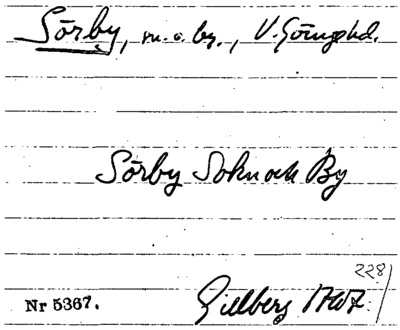 Sörby, sn. o. by., V. Göingehd.
Sörby Sokn och By
228
Nr 5367. Gillberg 1767